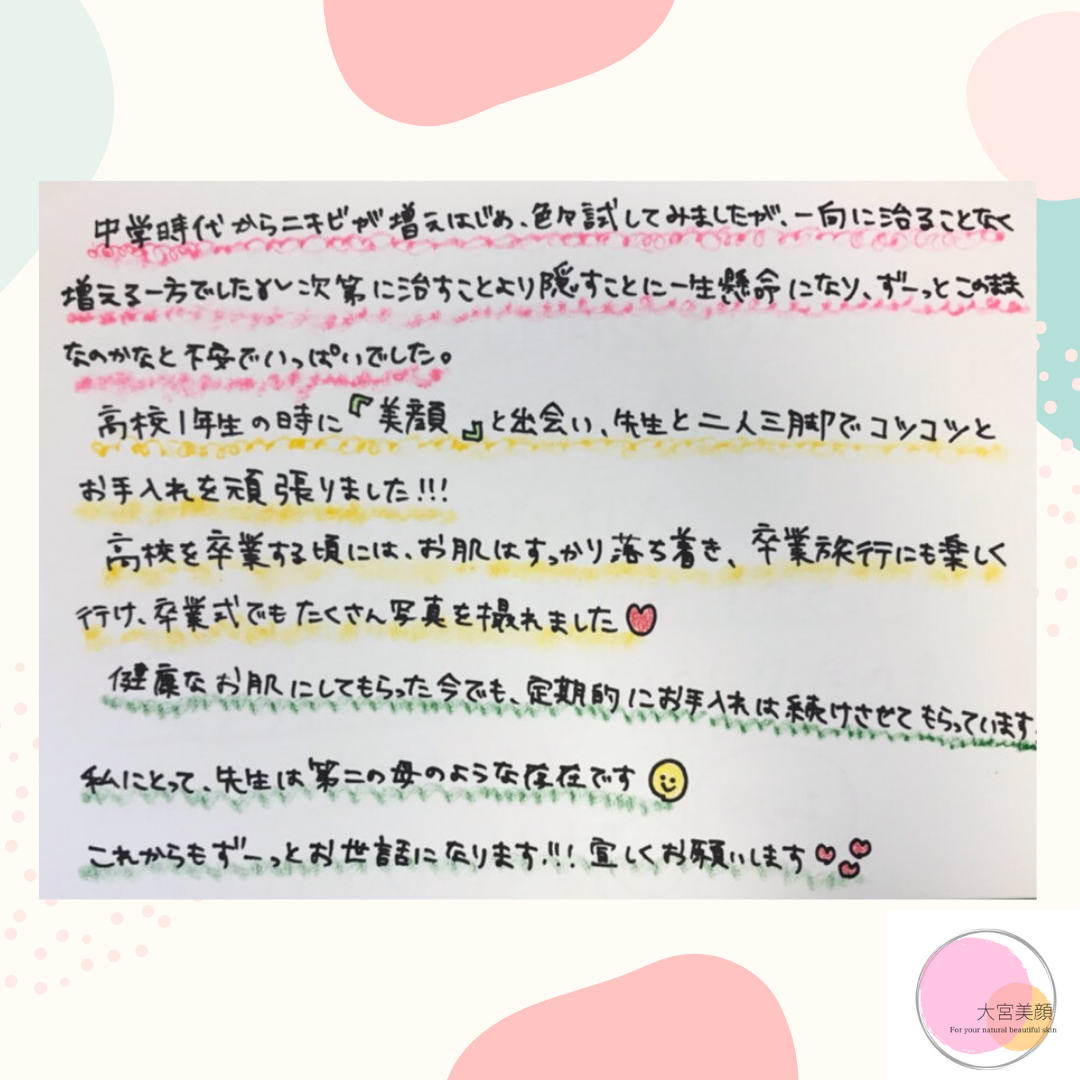 中学時代からニキビが増えはじめ、色々試してみましたが、一向に治ることなく
増える一方でした 次第に治すことより隠すことに一生懸命になり、ずーっとこのまま
なのかなと不安でいっぱいでした。
高校1年生の時に『美顔』と出会い、先生と二人三脚でコツコツと
お手入れを頑張りました!!!
高校を卒業する頃には、お肌はすっかり落ち着き、卒業旅行にも楽しく
行け、卒業式でもたくさん写真を撮れました
健康なお肌にしてもらった今でも、定期的にお手入れは続けさせてもらっています
私にとって、先生は第二の母のような存在です
これからもずーっとお世話になります!!! 宜しくお願いします
大宮美顔
For your natural beautiful skin